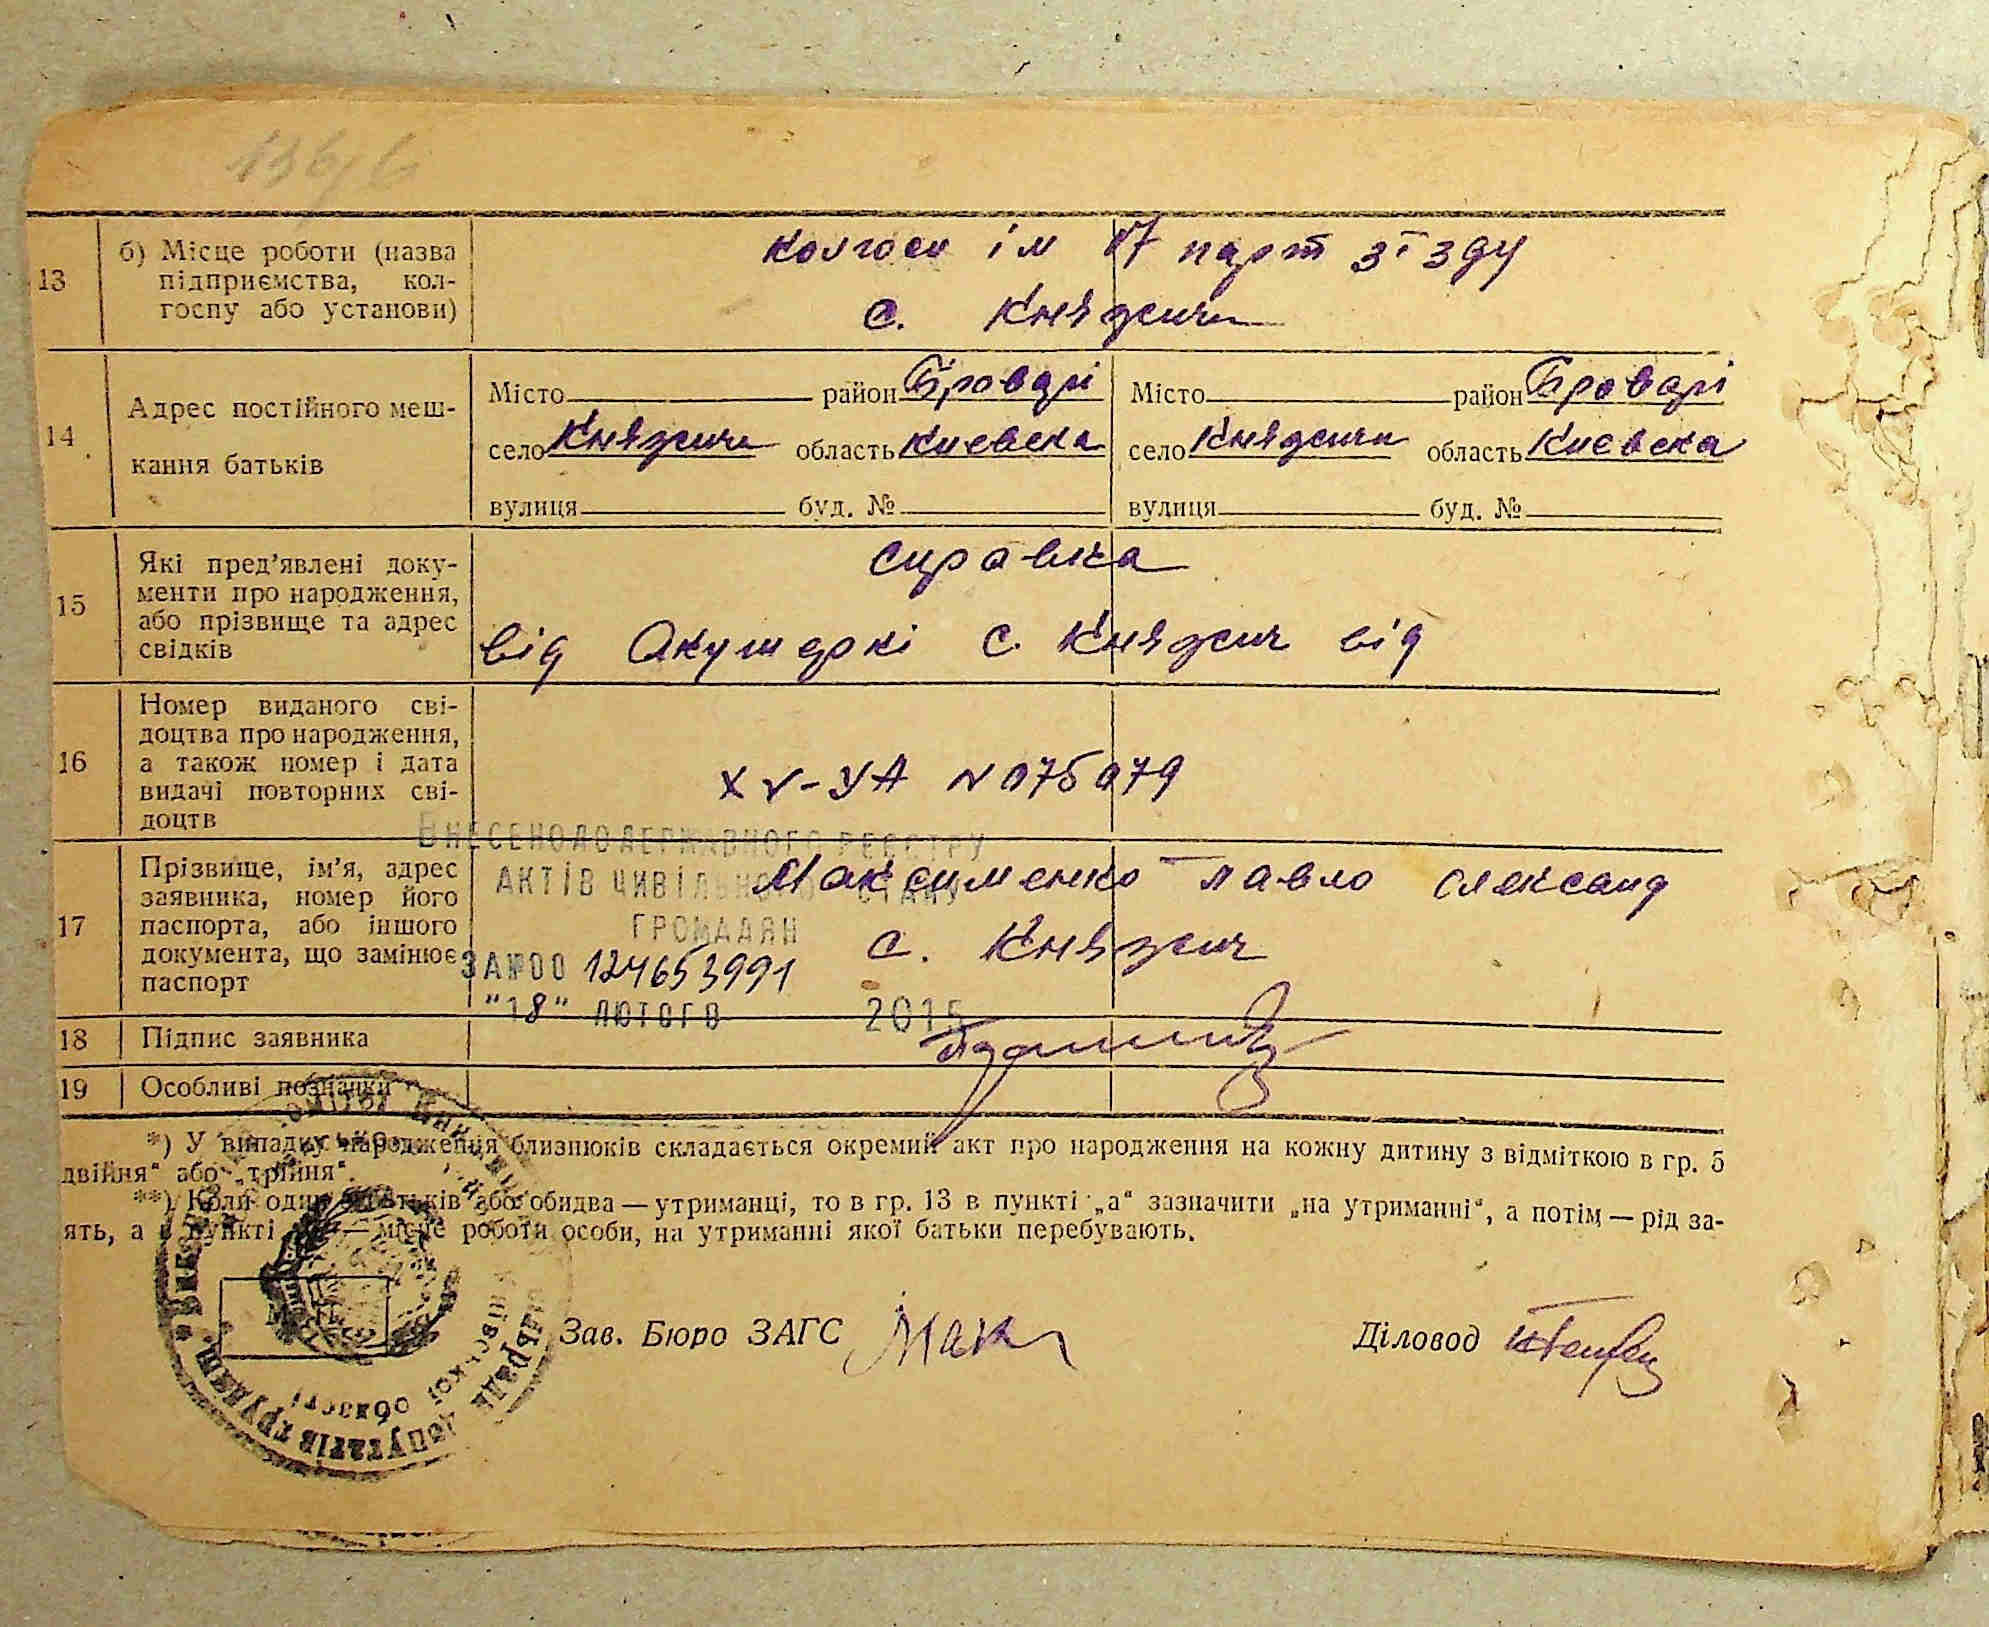 136/6
13
б) Місце роботи (назва
підприємства, кол-
госпу або установи)
колгосп ім 17 парт зїзду
с. Княжичи
14
Адрес постійного меш-
кання батьків
Місто район Бровари
село Княжичи область Киевска
вулиця буд. №
Місто район Бровари
село Княжичи область Киевска
вулиця буд. №
15
Які пред’явлені доку-
менти про народження,
або прізвище та адрес
свідків
справка
від Акушеркі с. Княжич від
16
Номер виданого сві-
доцтва про народження,
а також номер і дата
видачі повторних сві-
доцтв
XV-УА N 075079
17
Прізвище, ім’я, адрес
заявника, номер його
паспорта, або іншого
документа, що замінює
паспорт
Максименко павло олександ
с. Княжич
ВНЕСЕНО ДО ДЕРЖАВНОГО РЕЄСТРУ
АКТІВ ЦИВІЛЬНОГО СТАНУ
ГРОМАДЯН
ЗА №00 124653991
"18" ЛЮТОГО 2015
18
Підпис заявника
19
Особливі познанки
*) У випадку народження близнюків складається окремий акт про народження на кожну дитину з відміткою в гр. 5
двійня“ або „трійня“.
**) Коли один з батьків або обидва — утриманці, то в гр. 13 в пункті „а“ зазначити „на утриманні“, а потім — рід за-
ять, а в пункті — місце роботи особи, на утриманні якої батьки перебувають.
Зав. Бюро ЗАГС Мак
Діловод
депутатів трудящ.
Київської області